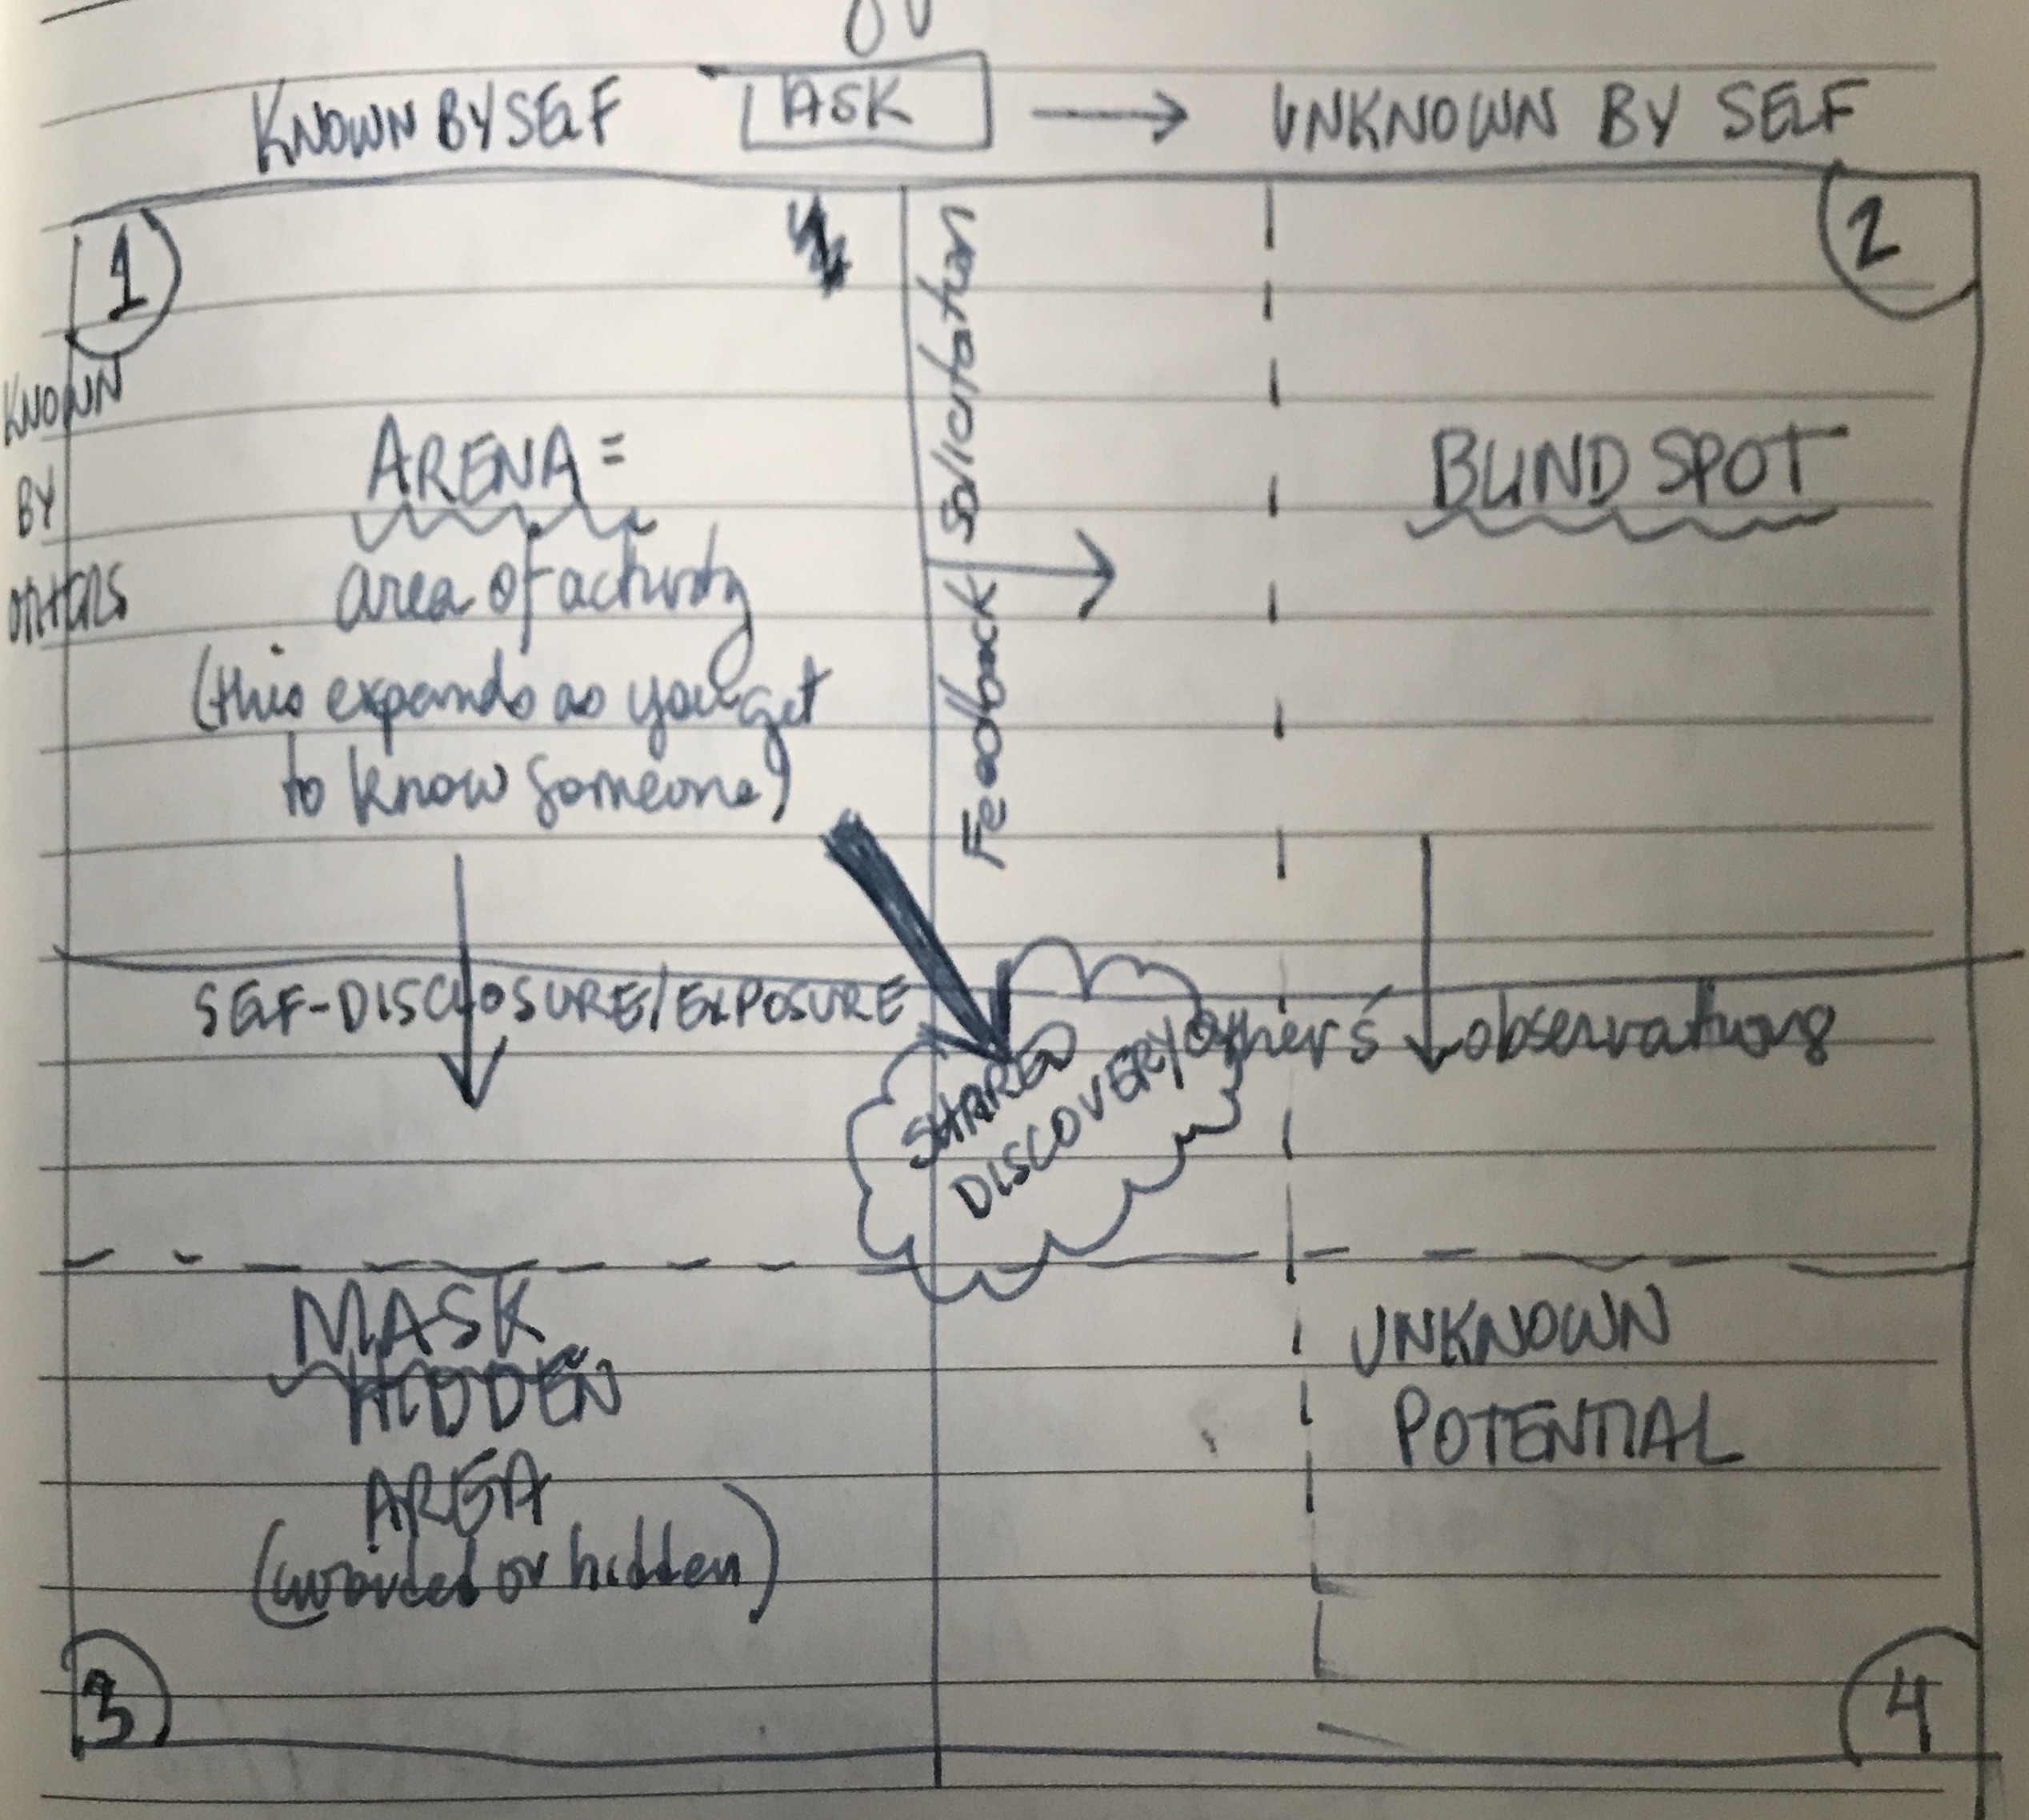 KNOWN BY SELF ASK → UNKNOWN BY SELF
1
2
KNOWN
BY
OTHERS
ARENA =
area of activity
(this expands as you get
to know someone)
Feedback Solicitation
BLIND SPOT
SELF-DISCLOSURE/EXPOSURE
SHARED
DISCOVERY/Others' observations
MASK
HIDDEN
AREA
(avoided or hidden)
UNKNOWN
POTENTIAL
3
4